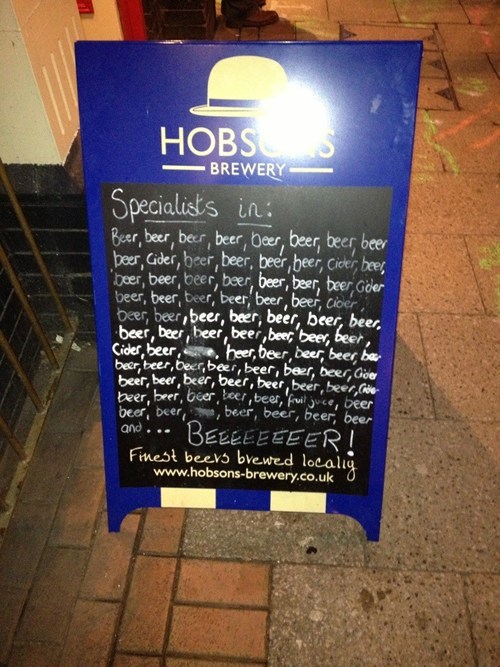 HOBSONS
BREWERY
Specialists in:
Beer, beer, beer, beer, beer, beer, beer, beer
beer, Cider, beer, beer, beer, beer, cider, beer,
beer, beer, beer, beer, beer, beer, beer, Cider
beer, beer, beer, beer, beer, beer, cider,
beer, beer, beer, beer, beer, beer, beer,
beer, beer, beer, beer, beer, beer, beer,
Cider, beer, beer, beer, beer, beer, beer
beer, beer, beer, beer, beer, beer, beer, Cider
beer, beer, beer, beer, beer, beer, beer, Cider
beer, beer, beer, beer, beer, fruit juice, beer
beer, beer, beer, beer, beer, beer
and ... BEEEEEEEER!
Finest beers brewed locally
www.hobsons-brewery.co.uk